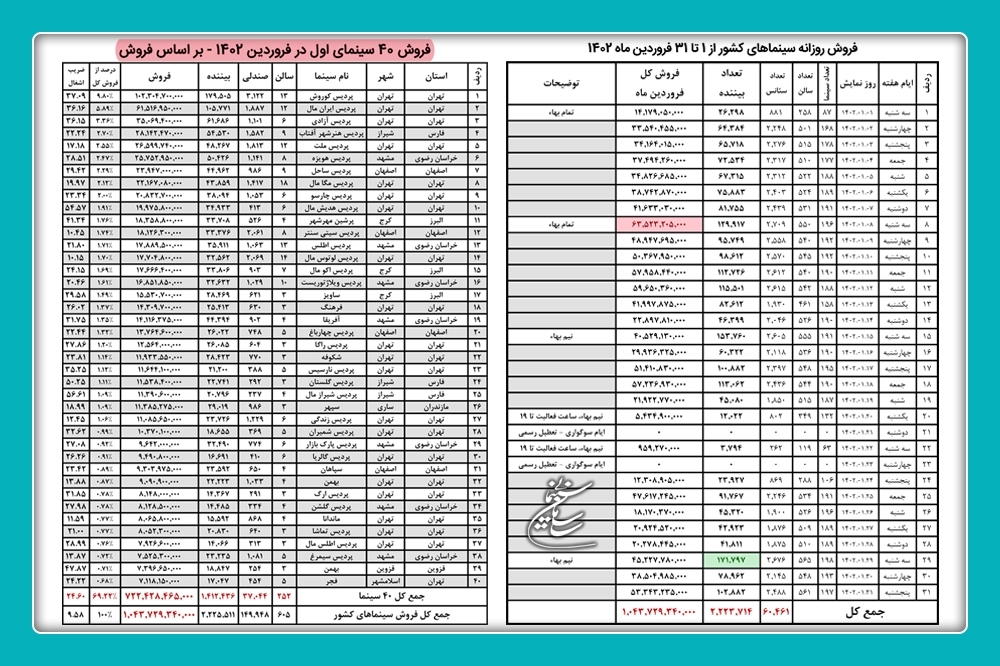 فروش روزانه سینماهای کشور از ۱ تا ۳۱ فروردین ماه ۱۴۰۲
ردیف ایام هفته روز نمایش تعداد سینما تعداد سالن تعداد سئانس تعداد بیننده فروش کل فروردین ماه توضیحات
۱ سه شنبه ۱۴۰۲.۰۱.۰۱ ۸۷ ۲۵۸ ۸۸۱ ۲۶,۲۹۸ ۱۴,۱۷۹,۰۵۰,۰۰۰ تمام بهاء
۲ چهارشنبه ۱۴۰۲.۰۱.۰۲ ۱۶۸ ۵۰۱ ۲,۲۴۸ ۶۴,۳۸۴ ۳۳,۵۴۰,۴۵۵,۰۰۰
۳ پنجشنبه ۱۴۰۲.۰۱.۰۳ ۱۷۸ ۵۱۵ ۲,۲۷۶ ۶۵,۷۱۸ ۳۴,۱۶۴,۰۱۵,۰۰۰
۴ جمعه ۱۴۰۲.۰۱.۰۴ ۱۷۷ ۵۱۰ ۲,۳۱۷ ۷۲,۵۳۴ ۳۷,۴۹۴,۲۶۰,۰۰۰
۵ شنبه ۱۴۰۲.۰۱.۰۵ ۱۸۸ ۵۲۲ ۲,۳۱۲ ۶۷,۳۱۵ ۳۴,۸۲۶,۶۸۵,۰۰۰
۶ یکشنبه ۱۴۰۲.۰۱.۰۶ ۱۸۹ ۵۲۴ ۲,۴۰۳ ۷۵,۸۸۳ ۳۸,۷۴۲,۸۷۰,۰۰۰
۷ دوشنبه ۱۴۰۲.۰۱.۰۷ ۱۹۱ ۵۳۱ ۲,۴۳۹ ۸۱,۷۵۵ ۴۱,۶۳۳,۰۳۰,۰۰۰
۸ سه شنبه ۱۴۰۲.۰۱.۰۸ ۱۹۶ ۵۵۰ ۲,۷۰۹ ۱۲۹,۹۱۷ ۶۳,۵۲۳,۲۰۵,۰۰۰ تمام بهاء
۹ چهارشنبه ۱۴۰۲.۰۱.۰۹ ۱۹۲ ۵۴۰ ۲,۵۵۸ ۹۵,۷۴۹ ۴۸,۹۴۷,۶۹۵,۰۰۰
۱۰ پنجشنبه ۱۴۰۲.۰۱.۱۰ ۱۹۲ ۵۴۵ ۲,۵۷۰ ۹۸,۶۱۲ ۵۰,۳۶۷,۹۵۰,۰۰۰
۱۱ جمعه ۱۴۰۲.۰۱.۱۱ ۱۹۰ ۵۴۰ ۲,۶۱۲ ۱۱۲,۷۲۶ ۵۷,۹۵۸,۴۴۰,۰۰۰
۱۲ شنبه ۱۴۰۲.۰۱.۱۲ ۱۸۸ ۵۴۲ ۲,۶۱۵ ۱۱۵,۵۰۱ ۵۹,۶۵۰,۳۶۰,۰۰۰
۱۳ یکشنبه ۱۴۰۲.۰۱.۱۳ ۱۵۸ ۴۶۱ ۱,۹۳۰ ۸۲,۶۱۲ ۴۱,۹۹۷,۸۷۵,۰۰۰
۱۴ دوشنبه ۱۴۰۲.۰۱.۱۴ ۱۹۰ ۵۲۶ ۲,۰۴۶ ۴۶,۳۹۹ ۲۲,۸۹۷,۸۱۰,۰۰۰
۱۵ سه شنبه ۱۴۰۲.۰۱.۱۵ ۱۹۱ ۵۵۵ ۲,۶۰۵ ۱۵۳,۷۶۰ ۴۰,۵۲۹,۱۳۰,۰۰۰ نیم بهاء
۱۶ چهارشنبه ۱۴۰۲.۰۱.۱۶ ۱۹۰ ۵۳۶ ۲,۱۱۸ ۶۰,۳۲۲ ۲۹,۹۳۶,۳۲۵,۰۰۰
۱۷ پنجشنبه ۱۴۰۲.۰۱.۱۷ ۱۹۵ ۵۴۸ ۲,۳۹۷ ۱۰۰,۸۸۲ ۵۱,۴۱۰,۸۳۰,۰۰۰
۱۸ جمعه ۱۴۰۲.۰۱.۱۸ ۱۹۰ ۵۴۴ ۲,۴۳۶ ۱۱۳,۰۶۲ ۵۷,۲۳۶,۹۳۰,۰۰۰
۱۹ شنبه ۱۴۰۲.۰۱.۱۹ ۱۸۷ ۵۱۵ ۱,۸۵۰ ۴۵,۰۸۰ ۲۱,۹۲۲,۷۷۰,۰۰۰
۲۰ یکشنبه ۱۴۰۲.۰۱.۲۰ ۱۳۲ ۳۴۹ ۸۰۲ ۱۲,۰۲۲ ۵,۴۳۴,۹۰۰,۰۰۰ نیم بهاء، ساعت فعالیت تا ۱۹
۲۱ دوشنبه ۱۴۰۲.۰۱.۲۱ ۰ ۰ ۰ ۰ ۰ ایام سوگواری - تعطیل رسمی
۲۲ سه شنبه ۱۴۰۲.۰۱.۲۲ ۶۳ ۱۱۹ ۲۶۲ ۳,۷۹۴ ۹۵۹,۲۷۰,۰۰۰ نیم بهاء، ساعت فعالیت تا ۱۹
۲۳ چهارشنبه ۱۴۰۲.۰۱.۲۳ ۰ ۰ ۰ ۰ ۰ ایام سوگواری - تعطیل رسمی
۲۴ پنجشنبه ۱۴۰۲.۰۱.۲۴ ۱۰۶ ۲۸۸ ۸۶۹ ۲۳,۹۲۷ ۱۲,۳۰۸,۹۰۵,۰۰۰
۲۵ جمعه ۱۴۰۲.۰۱.۲۵ ۱۹۱ ۵۳۴ ۲,۲۴۶ ۹۱,۷۶۷ ۴۷,۶۱۷,۲۴۵,۰۰۰
۲۶ شنبه ۱۴۰۲.۰۱.۲۶ ۱۹۶ ۵۲۶ ۱,۹۰۰ ۴۵,۳۲۰ ۱۸,۱۷۰,۳۷۰,۰۰۰
۲۷ یکشنبه ۱۴۰۲.۰۱.۲۷ ۱۸۹ ۵۰۹ ۱,۸۷۶ ۴۲,۹۲۳ ۲۰,۹۲۴,۵۲۰,۰۰۰
۲۸ دوشنبه ۱۴۰۲.۰۱.۲۸ ۱۸۹ ۵۱۰ ۱,۸۷۵ ۴۱,۸۱۱ ۲۰,۲۷۸,۴۴۵,۰۰۰
۲۹ سه شنبه ۱۴۰۲.۰۱.۲۹ ۱۹۸ ۵۶۵ ۲,۶۷۶ ۱۷۱,۷۹۷ ۴۵,۳۲۷,۷۸۰,۰۰۰ نیم بهاء
۳۰ چهارشنبه ۱۴۰۲.۰۱.۳۰ ۱۹۳ ۵۴۸ ۲,۱۴۵ ۷۸,۹۶۲ ۳۸,۵۰۴,۹۸۵,۰۰۰
۳۱ پنجشنبه ۱۴۰۲.۰۱.۳۱ ۱۹۷ ۵۶۱ ۲,۴۸۸ ۱۰۲,۸۸۲ ۵۳,۳۴۳,۲۳۵,۰۰۰
جمع کل ۶۰,۴۶۱ ۲,۲۲۳,۷۱۴ ۱,۰۴۳,۷۲۹,۳۴۰,۰۰۰
فروش ۴۰ سینمای اول در فروردین ۱۴۰۲ - بر اساس فروش
ردیف استان شهر نام سینما سالن صندلی بیننده فروش درصد از فروش کل ضریب اشغال
۱ تهران تهران پردیس کوروش ۱۳ ۳,۱۲۲ ۱۷۹,۵۰۵ ۱۰۲,۳۰۴,۷۰۰,۰۰۰ ۹.۸۰٪ ۳۷.۰۹
۲ تهران تهران پردیس ایران مال ۱۲ ۱,۸۸۷ ۱۰۵,۷۷۱ ۶۱,۵۱۶,۹۵۰,۰۰۰ ۵.۸۹٪ ۳۶.۱۶
۳ تهران تهران پردیس آزادی ۶ ۱,۱۰۱ ۶۱,۶۸۶ ۳۵,۰۶۹,۴۰۰,۰۰۰ ۳.۳۶٪ ۳۶.۱۵
۴ فارس شیراز پردیس هنرشهر آفتاب ۹ ۱,۵۸۲ ۵۴,۵۳۰ ۲۸,۱۴۲,۴۷۰,۰۰۰ ۲.۷۰٪ ۲۲.۲۴
۵ تهران تهران پردیس ملت ۱۲ ۱,۸۱۳ ۴۸,۲۶۷ ۲۶,۵۹۹,۷۴۰,۰۰۰ ۲.۵۵٪ ۱۷.۱۸
۶ خراسان رضوی مشهد پردیس هویزه ۸ ۱,۱۴۱ ۵۰,۴۲۶ ۲۵,۷۵۲,۹۵۰,۰۰۰ ۲.۴۷٪ ۲۸.۵۱
۷ اصفهان اصفهان پردیس ساحل ۹ ۹۸۶ ۴۴,۹۶۲ ۲۳,۹۴۷,۰۰۰,۰۰۰ ۲.۲۹٪ ۲۹.۴۲
۸ تهران تهران پردیس مگا مال ۱۸ ۱,۴۱۷ ۴۳,۸۵۹ ۲۲,۱۶۷,۰۸۰,۰۰۰ ۲.۱۲٪ ۱۹.۹۷
۹ تهران تهران پردیس چارسو ۶ ۱,۰۵۳ ۳۸,۰۹۴ ۲۰,۸۳۲,۷۰۰,۰۰۰ ۲.۰۰٪ ۲۳.۳۴
۱۰ تهران تهران پردیس هدیش مال ۶ ۴۱۳ ۳۴,۹۳۳ ۱۹,۹۷۵,۸۰۰,۰۰۰ ۱.۹۱٪ ۵۴.۵۷
۱۱ البرز کرج پرشین مهرشهر ۴ ۵۲۶ ۳۳,۷۰۸ ۱۸,۳۵۸,۸۰۰,۰۰۰ ۱.۷۶٪ ۴۱.۳۴
۱۲ اصفهان اصفهان پردیس سیتی سنتر ۸ ۲,۰۶۱ ۳۳,۳۷۶ ۱۸,۱۲۶,۳۰۰,۰۰۰ ۱.۷۴٪ ۱۰.۴۵
۱۳ خراسان رضوی مشهد پردیس اطلس ۷ ۱,۰۶۳ ۳۵,۹۱۱ ۱۷,۸۸۹,۵۰۰,۰۰۰ ۱.۷۱٪ ۲۱.۸۰
۱۴ تهران تهران پردیس لوتوس مال ۱۴ ۲,۰۶۹ ۳۲,۵۶۲ ۱۷,۷۰۴,۸۰۰,۰۰۰ ۱.۷۰٪ ۱۰.۱۵
۱۵ البرز کرج پردیس اکو مال ۷ ۹۰۳ ۳۳,۸۰۶ ۱۷,۶۶۶,۴۰۰,۰۰۰ ۱.۶۹٪ ۲۴.۱۵
۱۶ خراسان رضوی مشهد پردیس ویلاژتوریست ۱۰ ۱,۰۲۹ ۳۲,۶۳۲ ۱۶,۸۵۱,۸۵۰,۰۰۰ ۱.۶۱٪ ۲۰.۴۶
۱۷ البرز کرج ساویز ۳ ۶۲۱ ۲۸,۴۶۹ ۱۵,۵۳۰,۷۰۰,۰۰۰ ۱.۴۹٪ ۲۹.۵۸
۱۸ تهران تهران فرهنگ ۳ ۶۳۰ ۲۵,۴۱۳ ۱۴,۳۰۹,۷۰۰,۰۰۰ ۱.۳۷٪ ۲۶.۰۲
۱۹ خراسان رضوی مشهد آفریقا ۴ ۹۰۲ ۴۴,۳۹۴ ۱۴,۱۱۶,۳۷۵,۰۰۰ ۱.۳۵٪ ۳۱.۷۵
۲۰ اصفهان اصفهان پردیس چهارباغ ۵ ۷۴۸ ۲۶,۰۲۲ ۱۳,۷۶۴,۶۰۰,۰۰۰ ۱.۳۲٪ ۲۲.۴۴
۲۱ تهران تهران پردیس راگا ۳ ۶۰۴ ۲۶,۰۸۵ ۱۲,۵۶۴,۰۰۰,۰۰۰ ۱.۲۰٪ ۲۷.۸۶
۲۲ تهران تهران شکوفه ۳ ۷۷۰ ۲۸,۴۲۳ ۱۱,۹۳۳,۵۵۰,۰۰۰ ۱.۱۴٪ ۲۳.۸۱
۲۳ تهران تهران پردیس نارسیس ۵ ۳۸۸ ۲۱,۲۰۰ ۱۱,۶۴۴,۱۰۰,۰۰۰ ۱.۱۲٪ ۳۵.۲۵
۲۴ فارس شیراز پردیس گلستان ۳ ۲۹۲ ۲۲,۷۴۱ ۱۱,۵۳۸,۴۰۰,۰۰۰ ۱.۱۱٪ ۵۰.۲۵
۲۵ فارس شیراز پردیس شیراز مال ۴ ۲۳۷ ۲۰,۷۹۶ ۱۱,۳۹۰,۶۰۰,۰۰۰ ۱.۰۹٪ ۵۶.۶۱
۲۶ مازندران ساری سپهر ۳ ۹۸۶ ۲۹,۰۱۹ ۱۱,۳۸۵,۲۷۵,۰۰۰ ۱.۰۹٪ ۱۸.۹۹
۲۷ تهران تهران پردیس زندگی ۶ ۱,۲۲۹ ۲۳,۷۲۶ ۱۱,۰۸۵,۶۵۰,۰۰۰ ۱.۰۶٪ ۱۲.۴۵
۲۸ تهران تهران پردیس شمیران ۵ ۳۶۹ ۱۸,۶۵۵ ۱۰,۳۷۰,۱۰۰,۰۰۰ ۰.۹۹٪ ۳۲.۶۲
۲۹ خراسان رضوی مشهد پردیس پارک بازار ۶ ۷۷۴ ۳۲,۴۹۰ ۹,۶۴۲,۰۰۰,۰۰۰ ۰.۹۲٪ ۲۷.۰۸
۳۰ تهران تهران پردیس گالریا ۶ ۴۱۰ ۱۶,۶۹۱ ۹,۴۹۰,۸۰۰,۰۰۰ ۰.۹۱٪ ۲۶.۲۶
۳۱ اصفهان اصفهان سپاهان ۴ ۶۵۰ ۲۳,۵۹۲ ۹,۳۰۳,۹۷۵,۰۰۰ ۰.۸۹٪ ۲۳.۴۲
۳۲ تهران تهران بهمن ۴ ۱,۰۳۳ ۲۲,۲۲۳ ۹,۰۹۰,۹۰۰,۰۰۰ ۰.۸۷٪ ۱۳.۸۸
۳۳ تهران تهران پردیس ارگ ۳ ۲۹۱ ۱۴,۳۶۷ ۸,۱۴۸,۰۰۰,۰۰۰ ۰.۷۸٪ ۳۱.۸۵
۳۴ خراسان رضوی مشهد پردیس گلشن ۴ ۳۳۴ ۱۴,۴۸۵ ۸,۱۲۸,۵۰۰,۰۰۰ ۰.۷۸٪ ۲۷.۹۸
۳۵ تهران تهران ماندانا ۴ ۸۶۸ ۱۵,۵۹۲ ۸,۰۶۵,۸۰۰,۰۰۰ ۰.۷۷٪ ۱۱.۵۹
۳۶ تهران تهران پردیس تماشا ۳ ۶۴۰ ۲۰,۸۳۰ ۸,۰۵۲,۳۰۰,۰۰۰ ۰.۷۷٪ ۲۱.۰۰
۳۷ تهران تهران پردیس اطلس مال ۳ ۳۱۳ ۱۴,۰۶۶ ۷,۹۲۶,۶۰۰,۰۰۰ ۰.۷۶٪ ۲۸.۹۹
۳۸ خراسان رضوی مشهد پردیس سیمرغ ۵ ۱,۰۸۱ ۲۳,۲۳۵ ۷,۵۲۵,۳۰۰,۰۰۰ ۰.۷۲٪ ۱۳.۸۷
۳۹ قزوین قزوین بهمن ۳ ۲۵۴ ۱۸,۸۴۷ ۷,۳۹۶,۶۵۰,۰۰۰ ۰.۷۱٪ ۴۷.۸۷
۴۰ تهران اسلامشهر فجر ۵ ۴۵۴ ۱۷,۰۴۷ ۷,۱۱۸,۱۵۰,۰۰۰ ۰.۶۸٪ ۲۴.۲۲
جمع کل ۴۰ سینما ۲۵۲ ۳۷,۰۴۴ ۱,۴۱۲,۴۳۶ ۷۲۲,۴۲۸,۴۶۵,۰۰۰ ۶۹.۲۲٪ ۲۴.۶۰
جمع کل فروش سینماهای کشور ۶۰۵ ۱۴۹,۹۴۸ ۲,۲۲۵,۵۱۱ ۱,۰۴۳,۷۲۹,۳۴۰,۰۰۰ ۱۰۰٪ ۹.۵۸